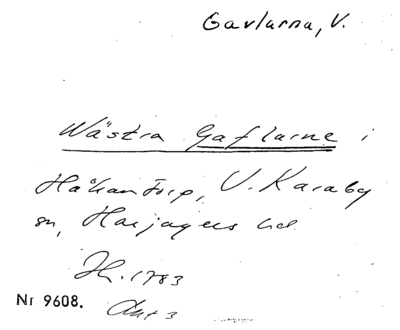 Gavlarna, V.
Wästra Gaflarne i
Håkantorp, V. Karaby
sn, Harjagers hd
Jh. 1783
Nr 9608.
Akt 3